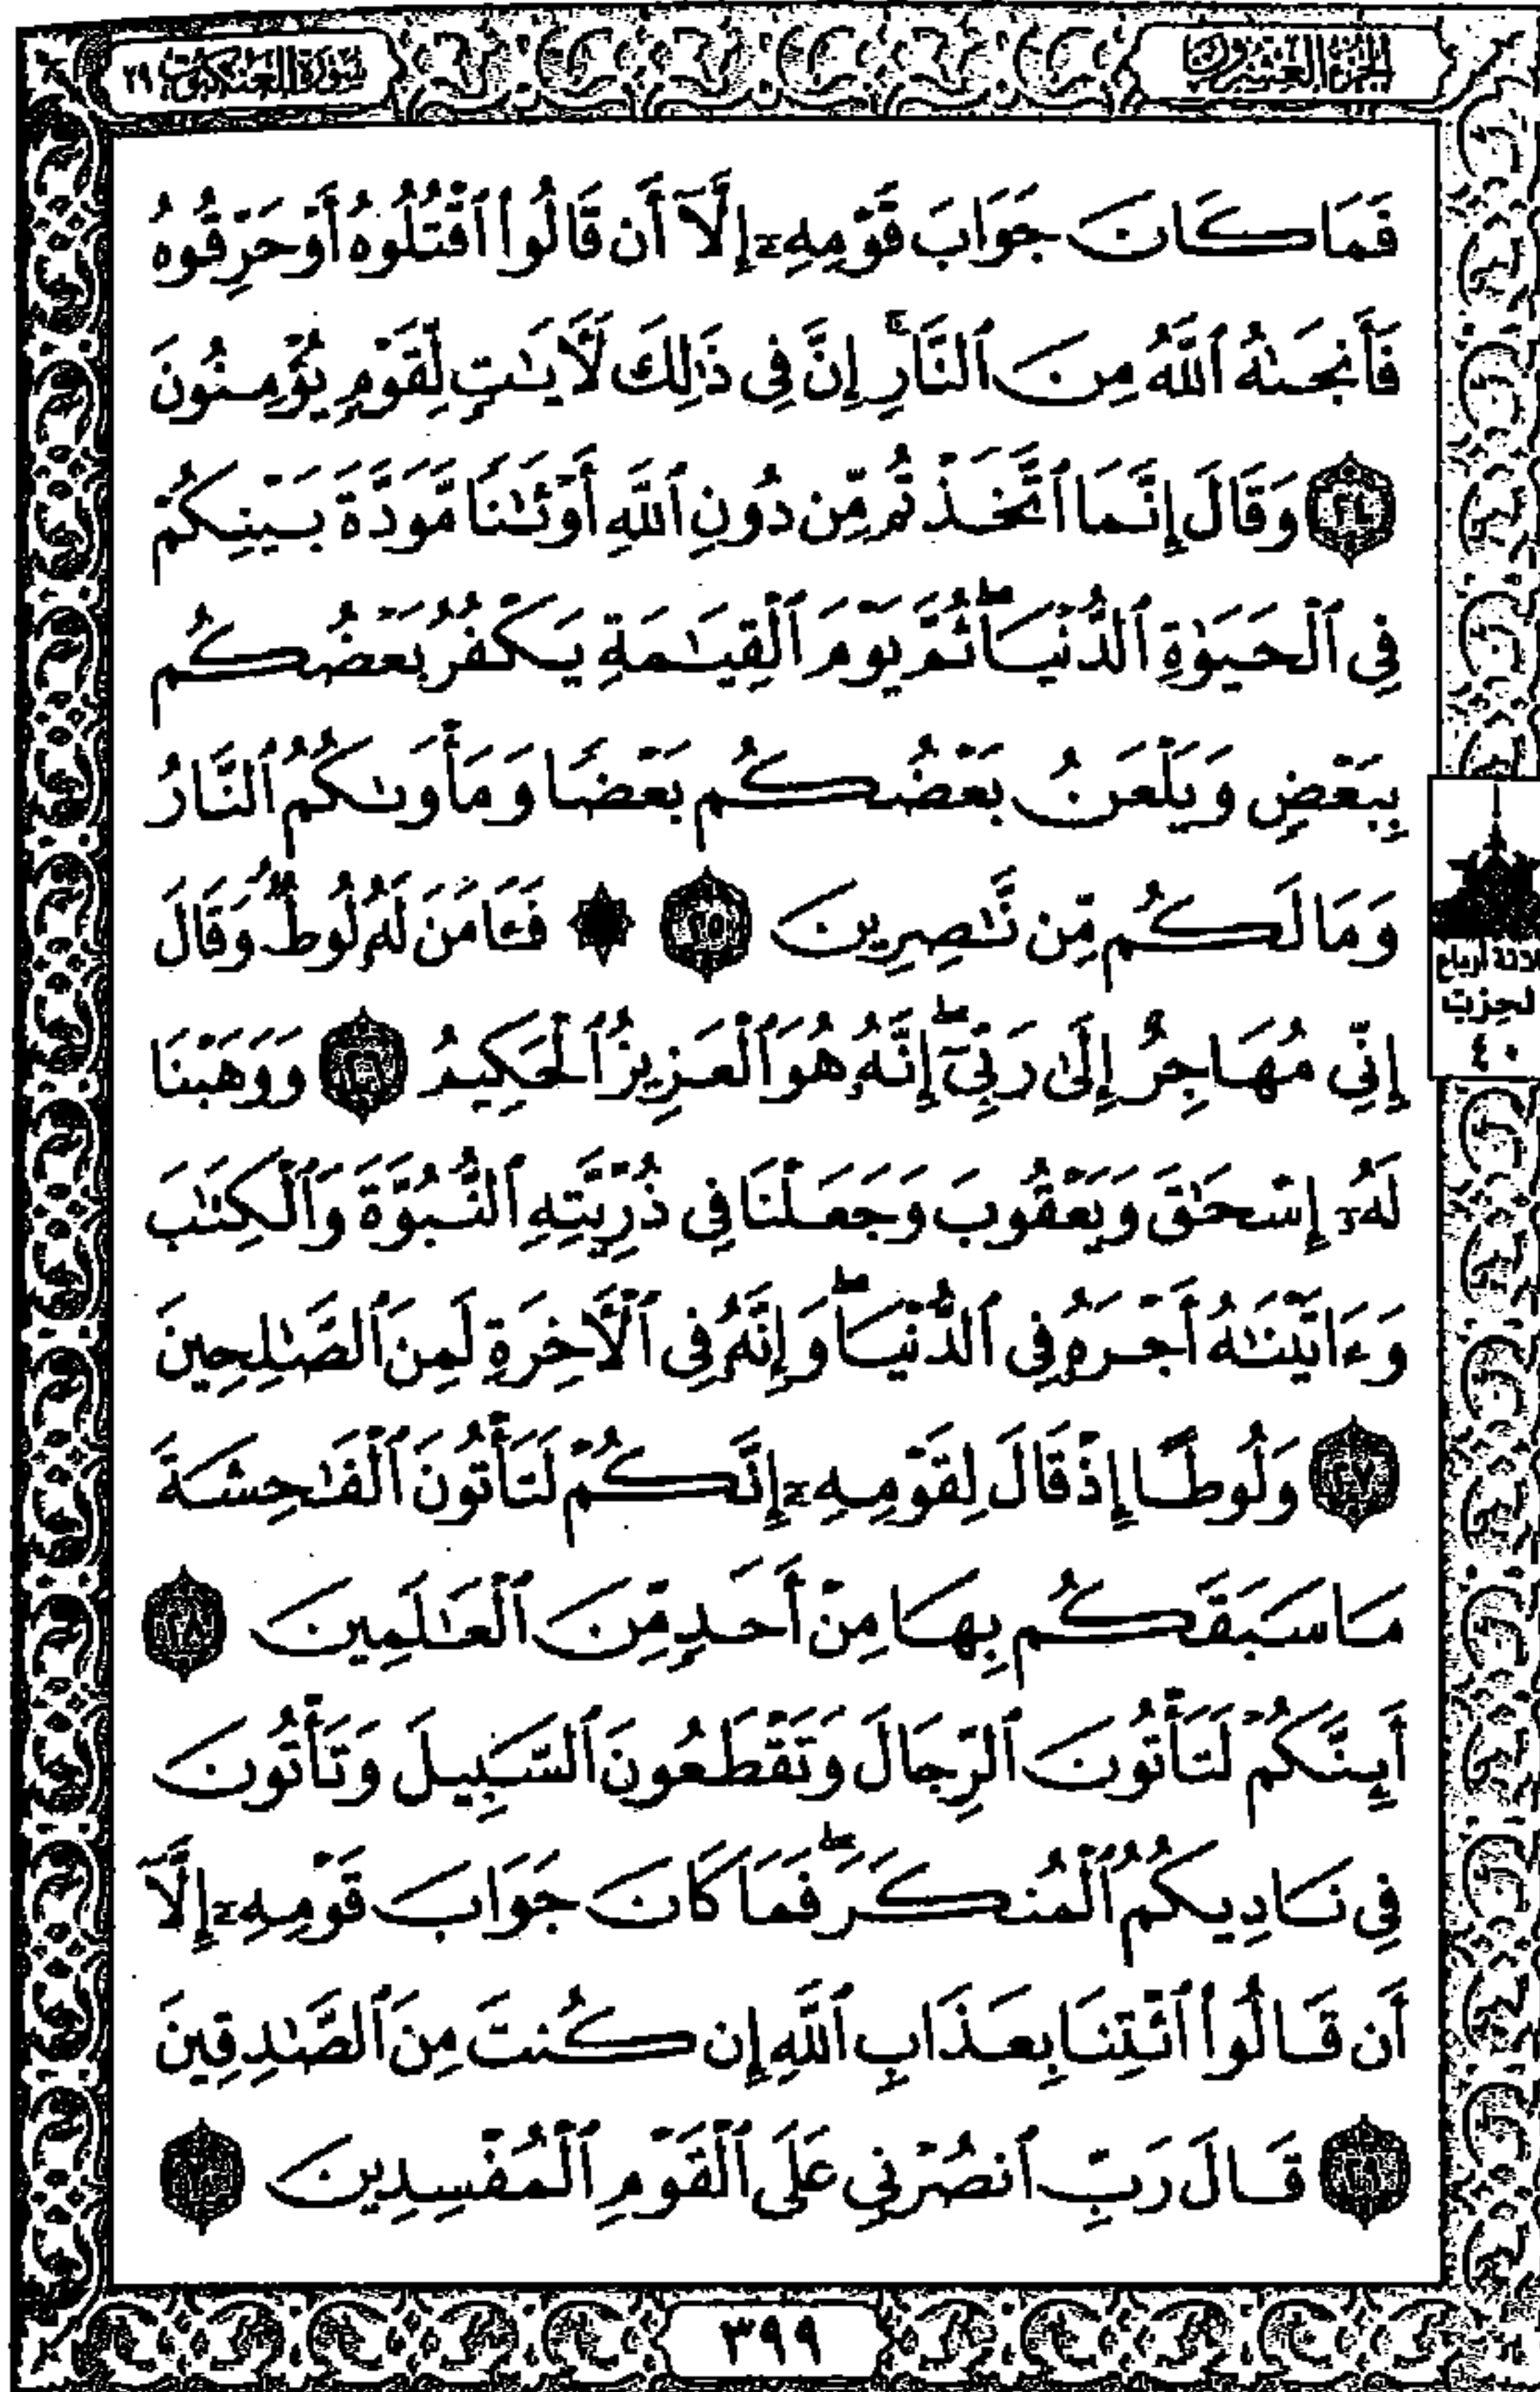 الجزء العشرون
سورة العنكبوت ٢٩
فَمَا كَانَ جَوَابَ قَوْمِهِۦٓ إِلَّآ أَن قَالُوا۟ ٱقْتُلُوهُ أَوْ حَرِّقُوهُ
فَأَنجَىٰهُ ٱللَّهُ مِنَ ٱلنَّارِ ۚ إِنَّ فِى ذَٰلِكَ لَـَٔايَـٰتٍ لِّقَوْمٍ يُؤْمِنُونَ
٢٤ وَقَالَ إِنَّمَا ٱتَّخَذْتُم مِّن دُونِ ٱللَّهِ أَوْثَـٰنًا مَّوَدَّةَ بَيْنِكُمْ
فِى ٱلْحَيَوٰةِ ٱلدُّنْيَا ۖ ثُمَّ يَوْمَ ٱلْقِيَـٰمَةِ يَكْفُرُ بَعْضُكُم
بِبَعْضٍ وَيَلْعَنُ بَعْضُكُم بَعْضًا وَمَأْوَىٰكُمُ ٱلنَّارُ
وَمَا لَكُم مِّن نَّـٰصِرِينَ ٢٥ ۞ فَـَٔامَنَ لَهُۥ لُوطٌ ۘ وَقَالَ
إِنِّى مُهَاجِرٌ إِلَىٰ رَبِّىٓ ۖ إِنَّهُۥ هُوَ ٱلْعَزِيزُ ٱلْحَكِيمُ ٢٦ وَوَهَبْنَا
لَهُۥٓ إِسْحَـٰقَ وَيَعْقُوبَ وَجَعَلْنَا فِى ذُرِّيَّتِهِ ٱلنُّبُوَّةَ وَٱلْكِتَـٰبَ
وَءَاتَيْنَـٰهُ أَجْرَهُۥ فِى ٱلدُّنْيَا ۖ وَإِنَّهُۥ فِى ٱلْـَٔاخِرَةِ لَمِنَ ٱلصَّـٰلِحِينَ
٢٧ وَلُوطًا إِذْ قَالَ لِقَوْمِهِۦٓ إِنَّكُمْ لَتَأْتُونَ ٱلْفَـٰحِشَةَ
مَا سَبَقَكُم بِهَا مِنْ أَحَدٍ مِّنَ ٱلْعَـٰلَمِينَ ٢٨
أَئِنَّكُمْ لَتَأْتُونَ ٱلرِّجَالَ وَتَقْطَعُونَ ٱلسَّبِيلَ وَتَأْتُونَ
فِى نَادِيكُمُ ٱلْمُنكَرَ ۖ فَمَا كَانَ جَوَابَ قَوْمِهِۦٓ إِلَّآ
أَن قَالُوا۟ ٱئْتِنَا بِعَذَابِ ٱللَّهِ إِن كُنتَ مِنَ ٱلصَّـٰدِقِينَ
٢٩ قَالَ رَبِّ ٱنصُرْنِى عَلَى ٱلْقَوْمِ ٱلْمُفْسِدِينَ ٣٠
ثلاثة أرباع
الحزب
٤٠
٣٩٩